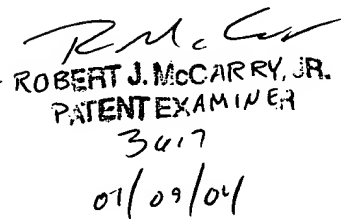 R McCar
ROBERT J. McCARRY, JR.
PATENT EXAMINER
3617
01/09/04